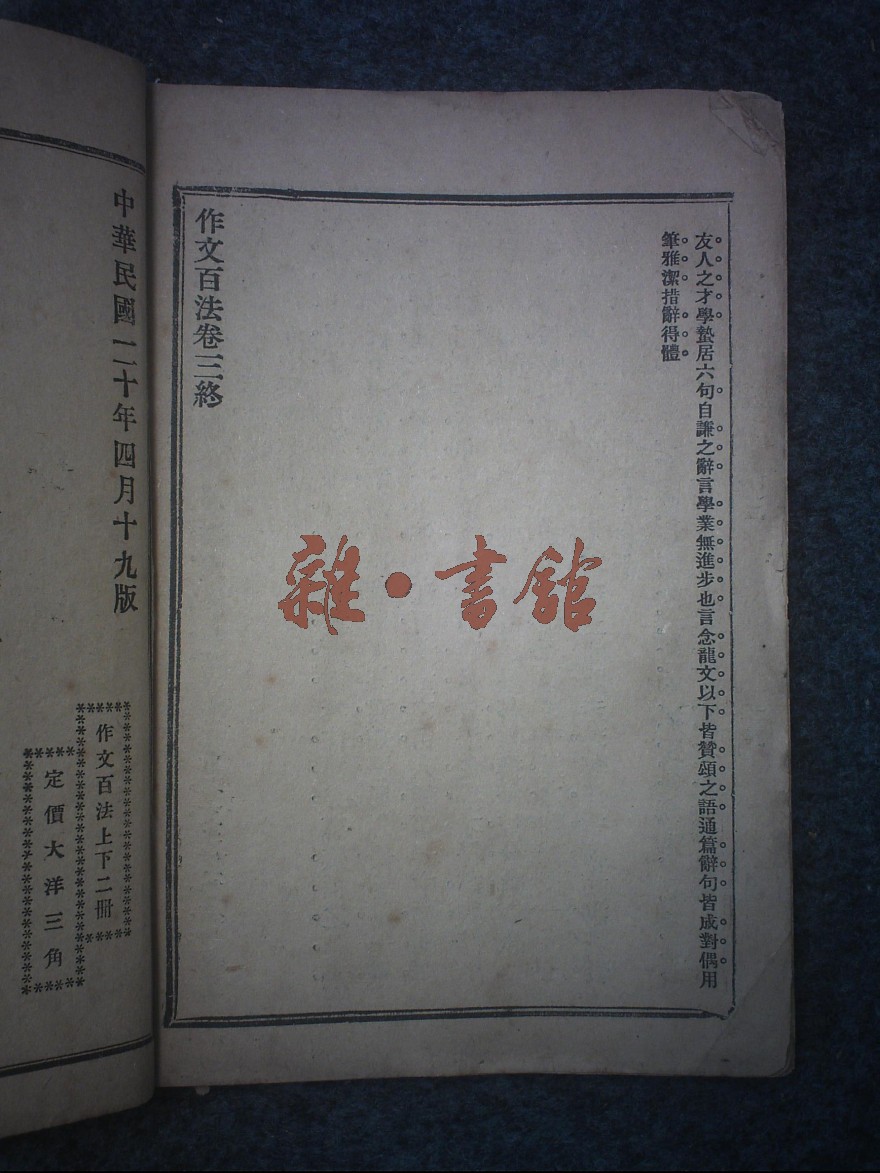 友人之才學蟄居六句自謙之辭言學業無進步也言念龍文以下皆贊頌之語通篇辭句皆成對偶用
筆雅潔措辭得體
作文百法卷三終
雜·書館
中華民國二十年四月十九版
作文百法上下二冊
定價大洋三角